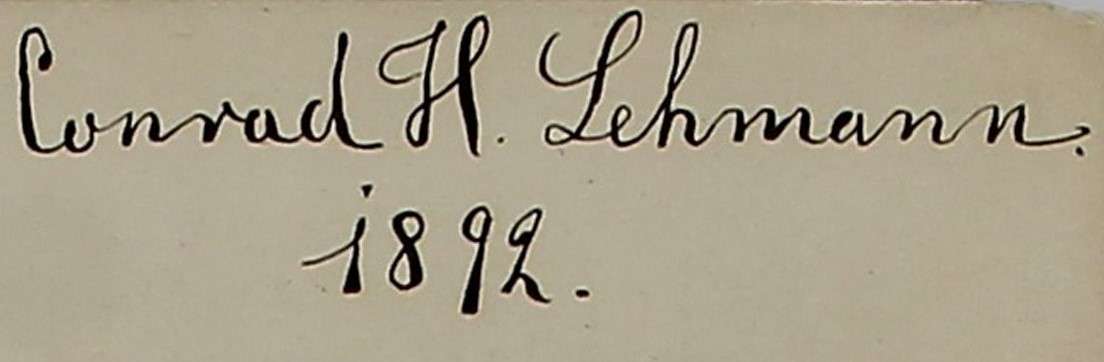 Conrad H. Lehmann.
1892.